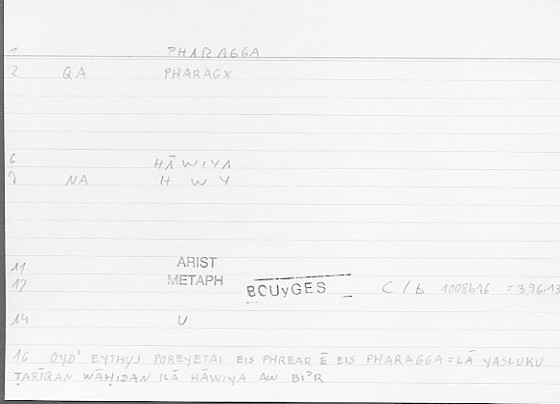 1 PHARAGGA
2 QA PHARAGX
6 HĀWIYA
7 NA H W Y
11 ARIST
12 METAPH BOUyGES C/b 1008b16 = 396.13
14 U
16 OYD' EYTHYS POREYETAI EIS PHREAR Ē EIS PHARAGGA = LĀ YASLUKU
ṬARĪQAN WĀḤIDAN ILĀ HĀWIYA AW BIʾR